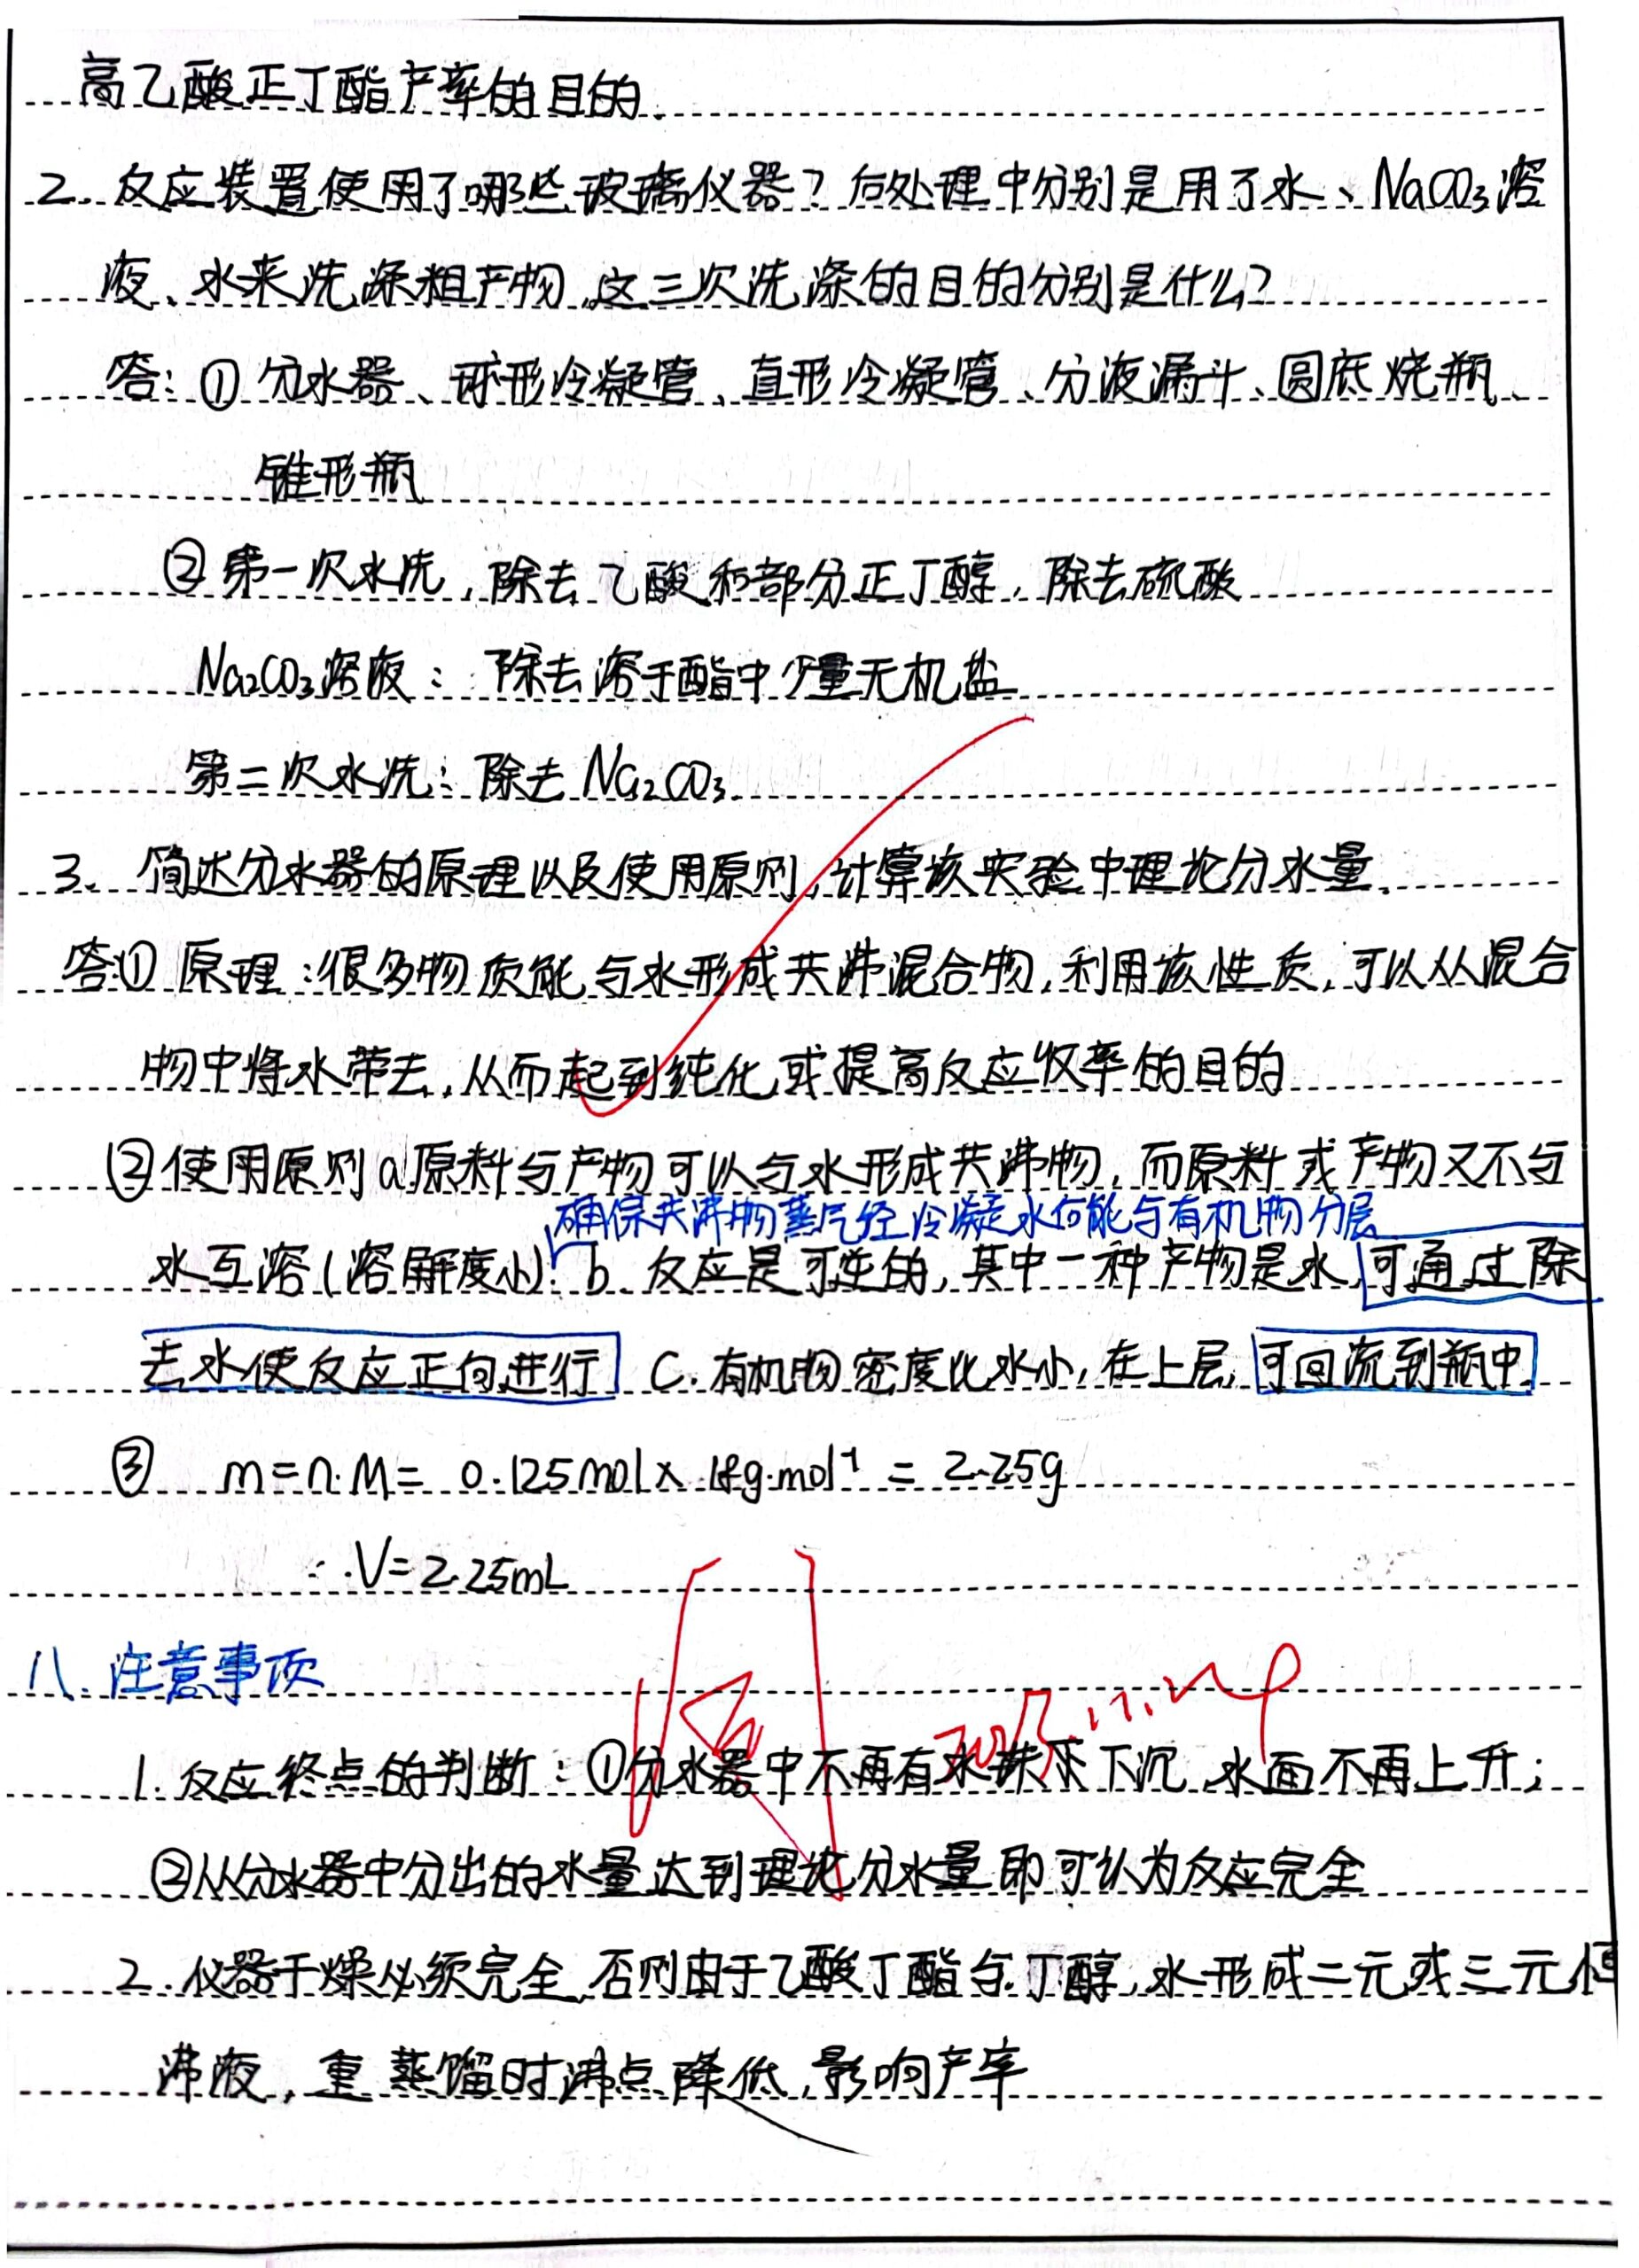 高乙酸正丁酯产率的目的.
2. 反应装置使用了哪些玻璃仪器？后处理中分别是用了水、NaCO₃溶
液、水来洗涤粗产物,这三次洗涤的目的分别是什么?
答: ① 分水器、球形冷凝管、直形冷凝管、分液漏斗、圆底烧瓶、
锥形瓶
② 第一次水洗, 除去乙酸和部分正丁醇, 除去硫酸
Na₂CO₃溶液: 除去溶于酯中少量无机盐
第二次水洗: 除去Na₂CO₃
3. 简述分水器的原理以及使用原则,计算该实验中理论分水量.
答:① 原理:很多物质能与水形成共沸混合物,利用该性质,可以从混合
物中将水带去,从而起到纯化或提高反应收率的目的
②使用原则 a.原料与产物可以与水形成共沸物,而原料或产物又不与
确保共沸物蒸气经冷凝水后能与有机物分层
水互溶(溶解度小). b. 反应是可逆的,其中一种产物是水,可通过除
去水使反应正向进行 C. 有机物密度比水小,在上层,可回流到瓶中.
③ m=n·M= 0.125mol× 18g·mol⁻¹ = 2.25g
∴V=2.25mL
八. 注意事项
1. 反应终点的判断: ①分水器中不再有水珠下沉,水面不再上升;
②从分水器中分出的水量达到理论分水量即可认为反应完全
2. 仪器干燥必须完全,否则由于乙酸丁酯与丁醇,水形成二元或三元恒
沸液, 重蒸馏时沸点降低,影响产率